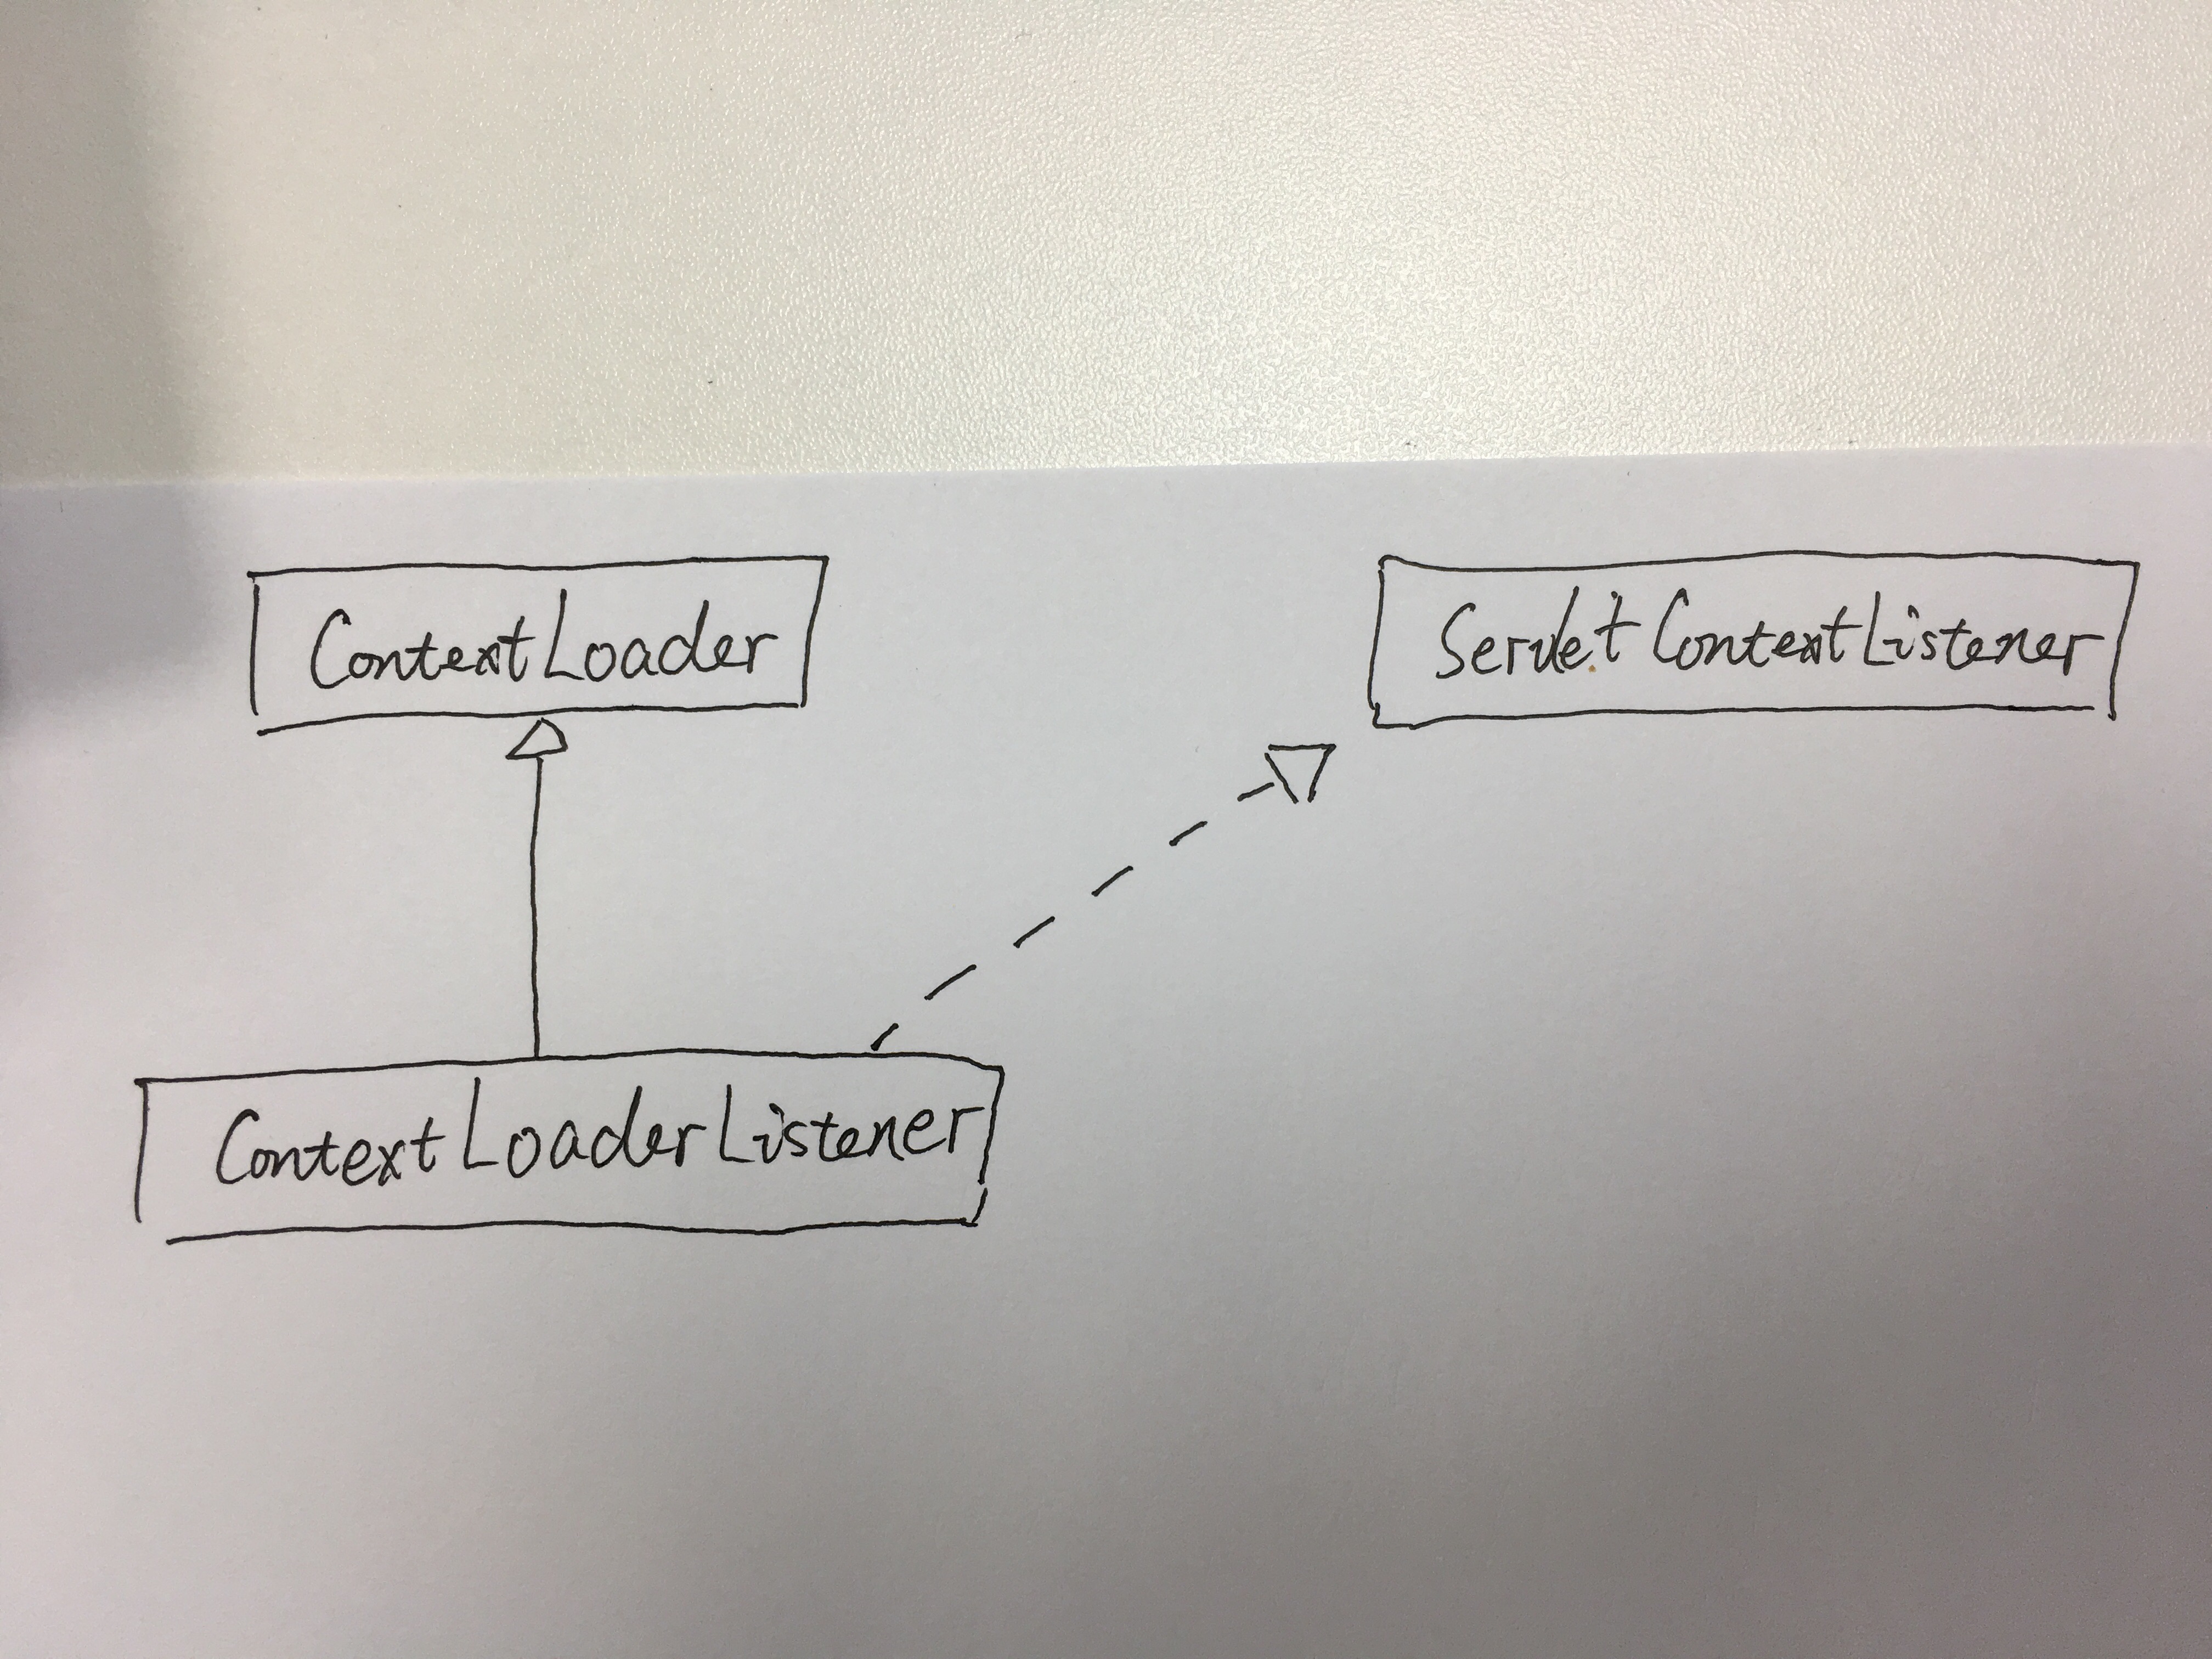 ContextLoader
ServletContextListener
ContextLoaderListener